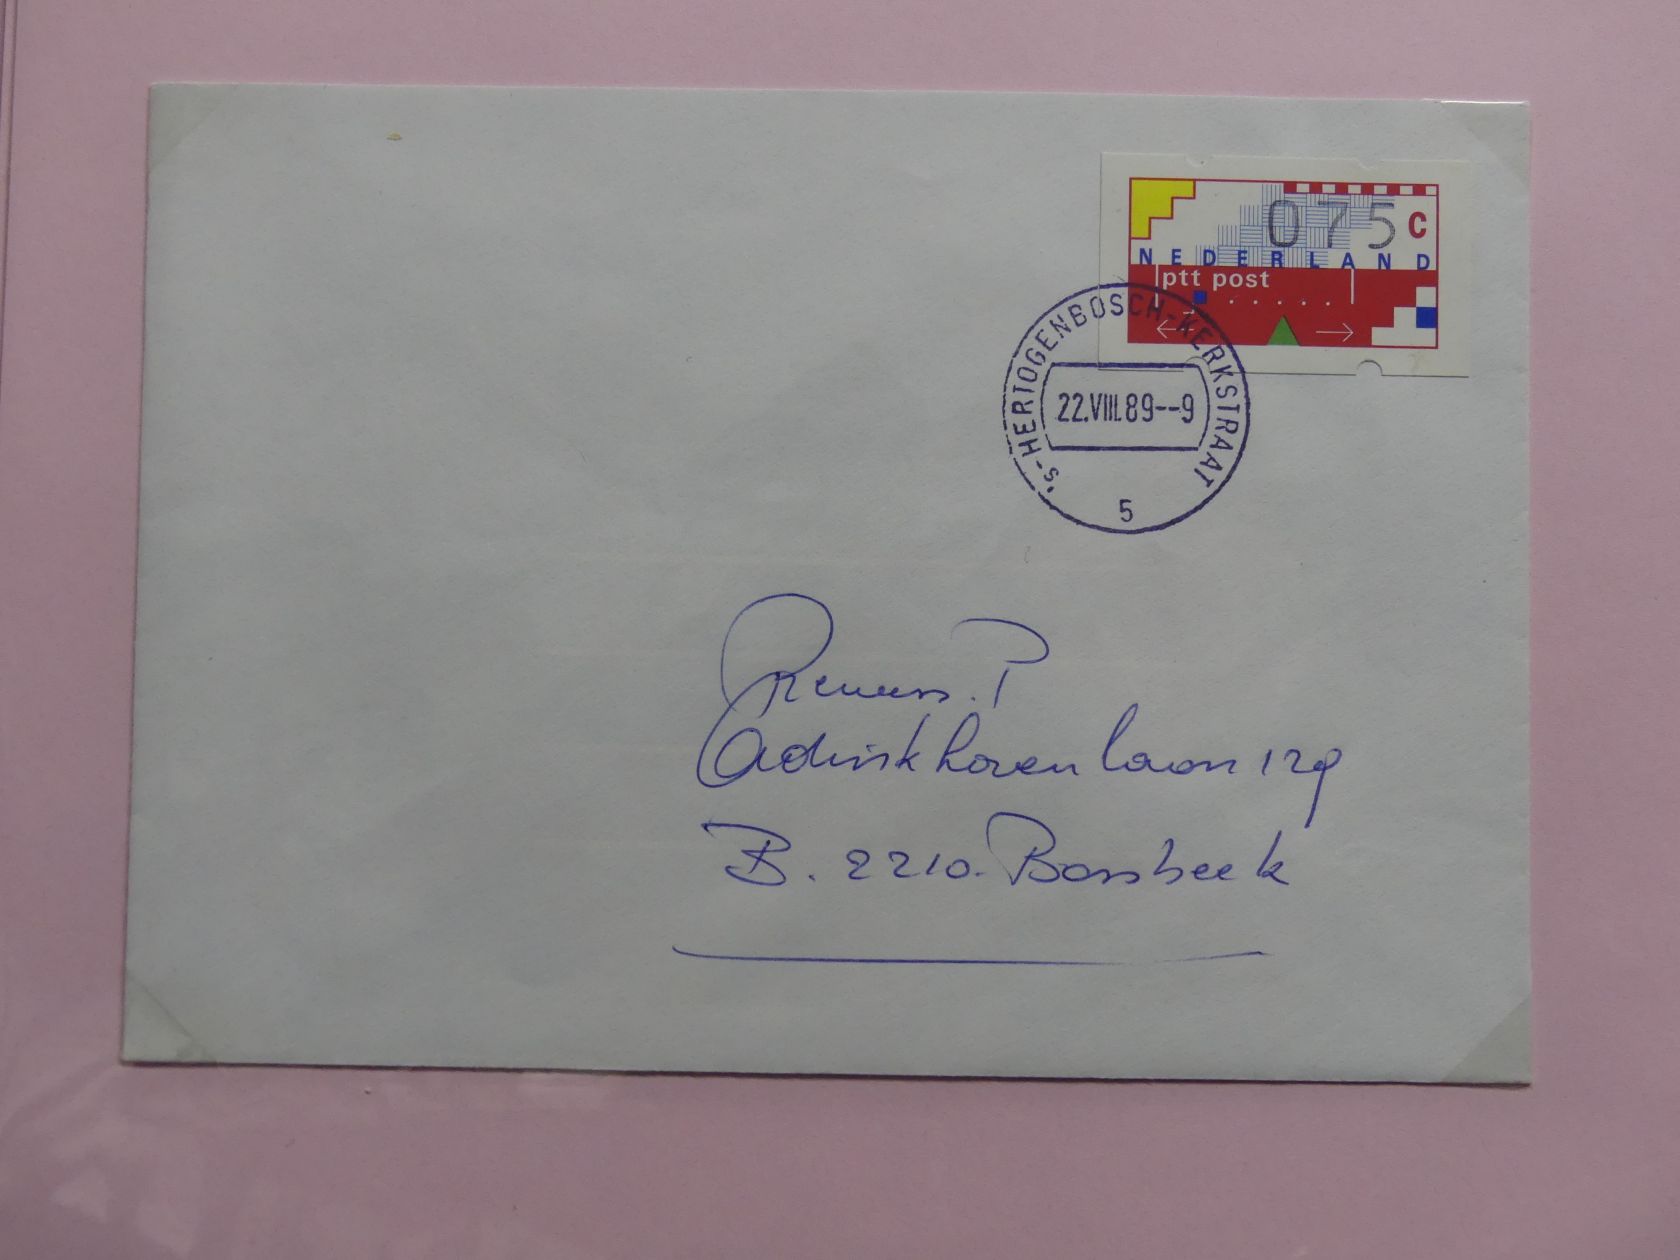 075 C
NEDERLAND
ptt post
's-HERTOGENBOSCH-KERKSTRAAT
22.VIII.89--9
5
P
129
B. 2210. Borsbeek